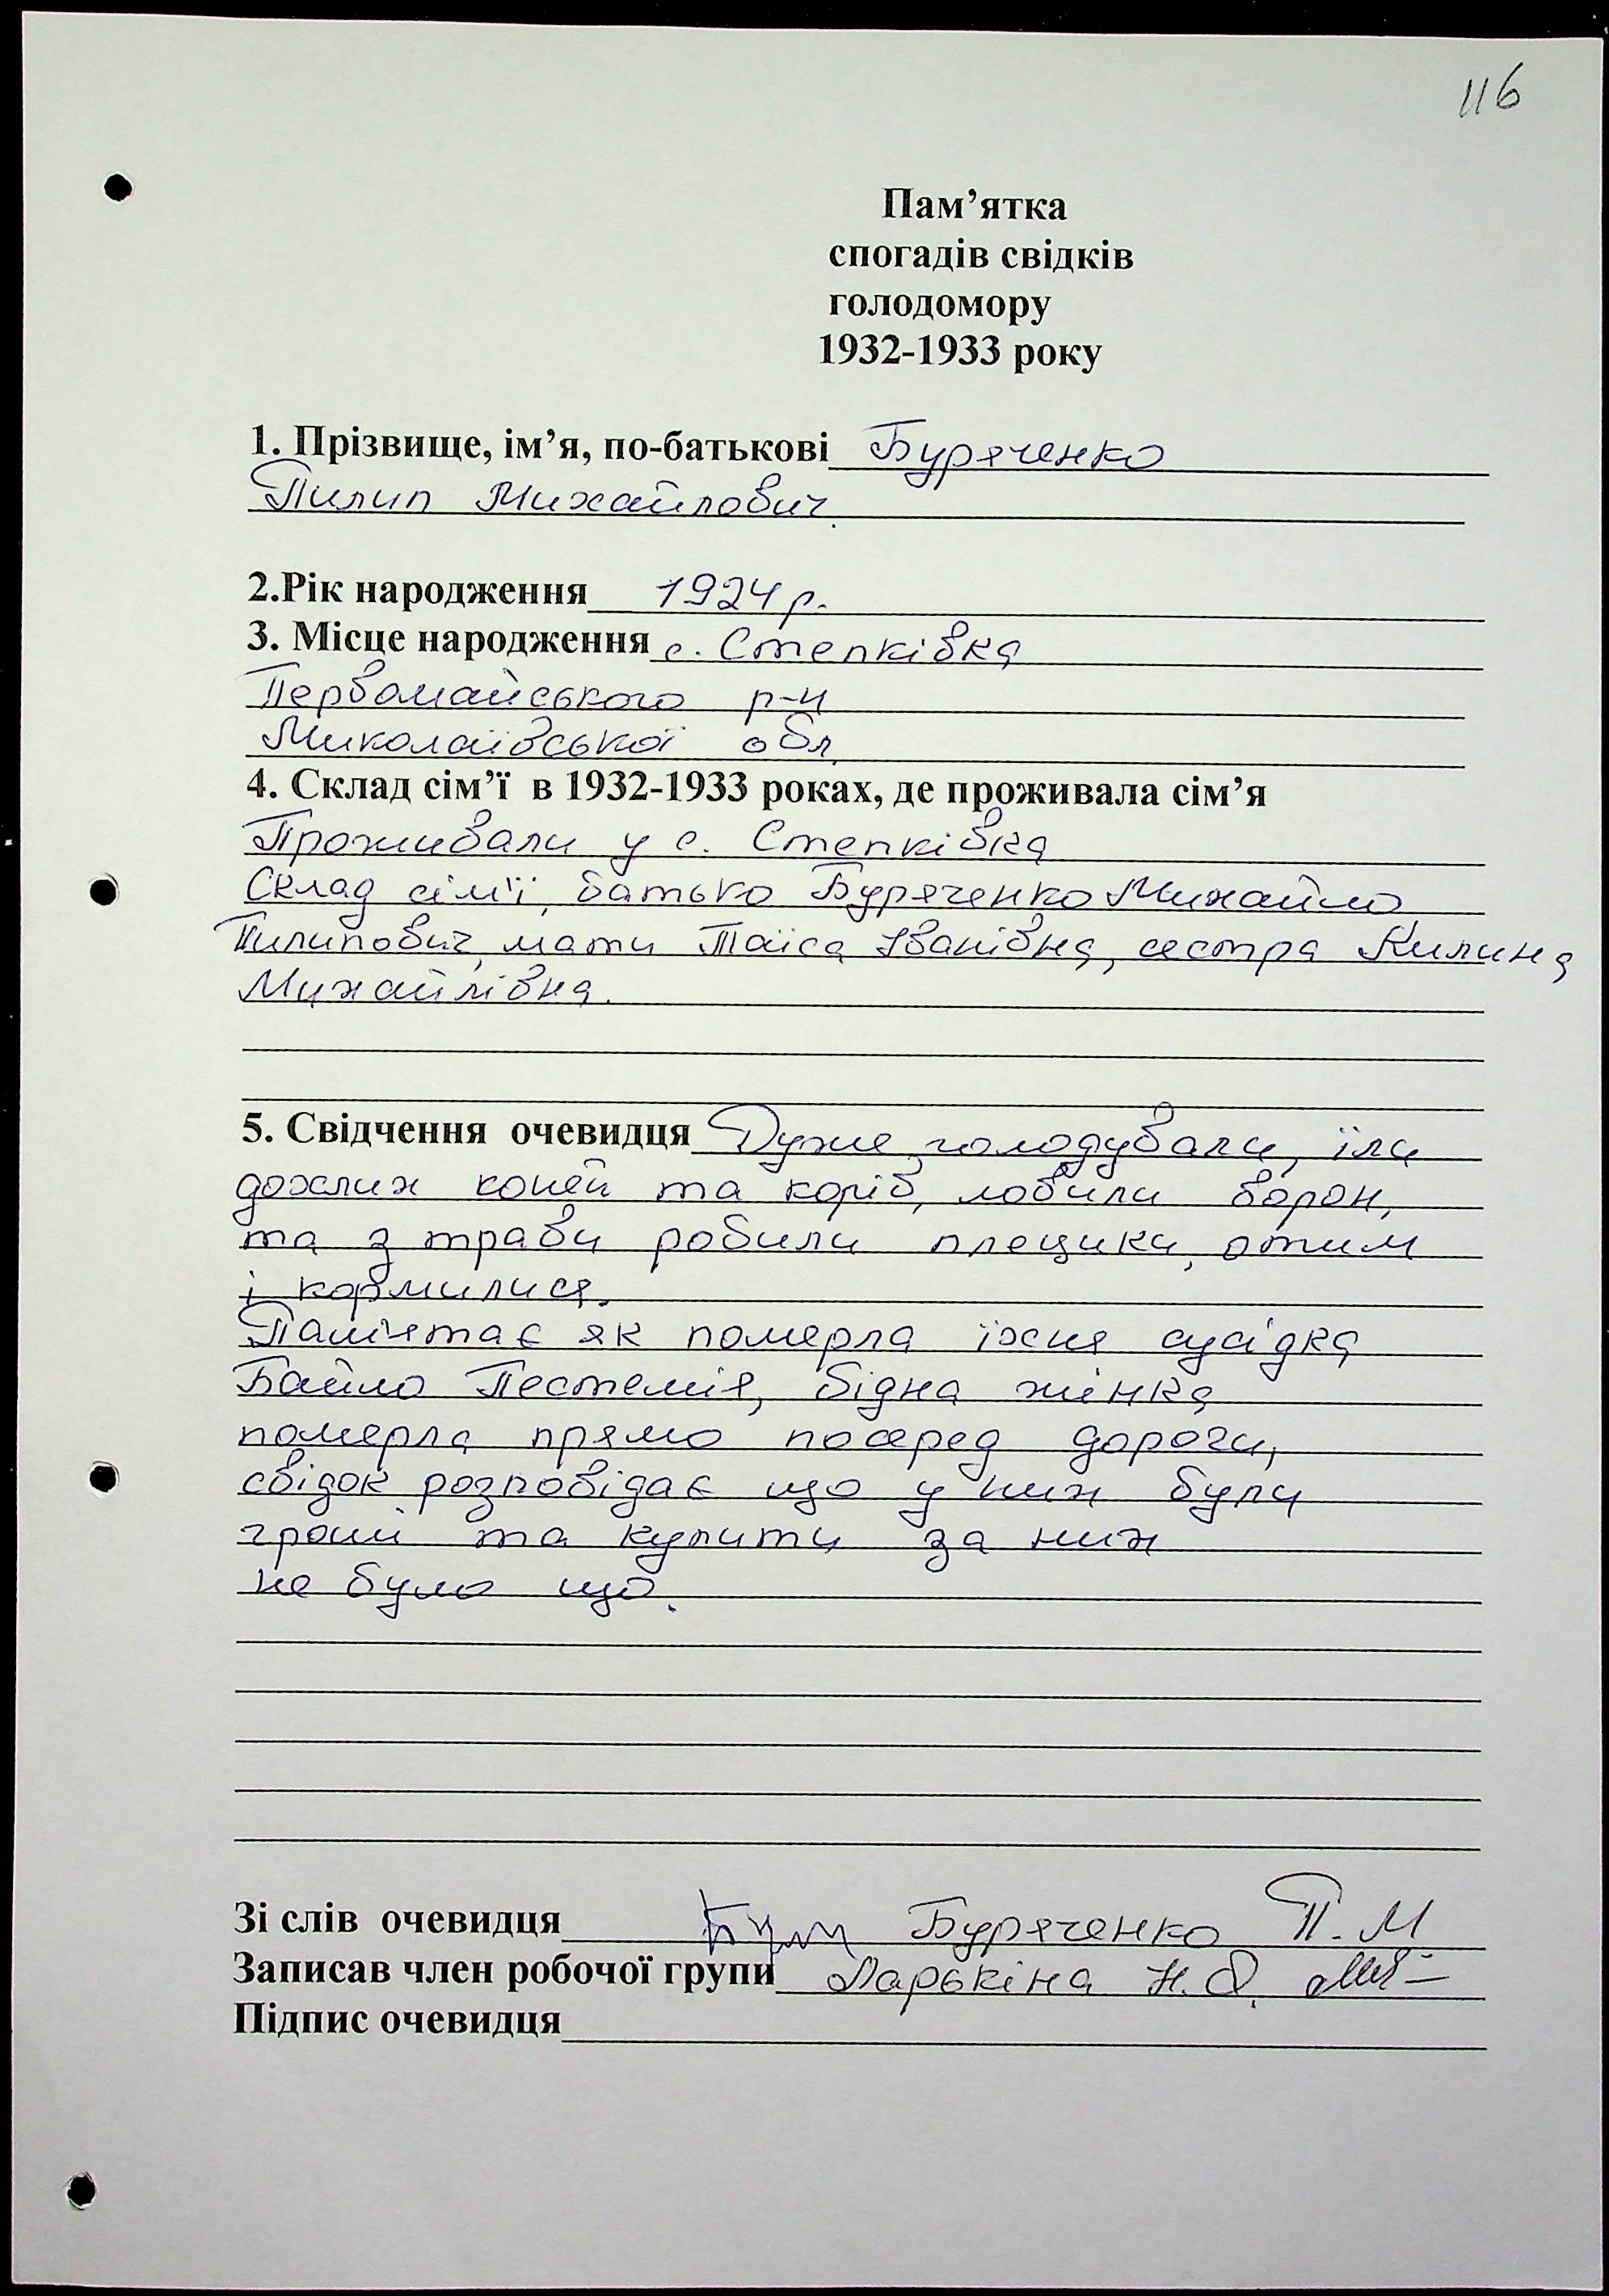 116
Пам’ятка
спогадів свідків
голодомору
1932-1933 року
1. Прізвище, ім’я, по-батькові Буряченко
Пилип Михайлович.
2.Рік народження 1924 р.
3. Місце народження с. Степківка
Первомайського р-н
Миколаївської обл.
4. Склад сім’ї в 1932-1933 роках, де проживала сім’я
Проживали у с. Степківка
Склад сім'ї, батько Буряченко Михайло
Пилипович, мати Таїса Іванівна, сестра Килина
Михайлівна.
5. Свідчення очевидця Дуже голодували, їли
дохлих коней та корів, ловили ворон,
та з трави робили плецики, отим
і кормилися.
Пам'ятає як померла їхня сусідка
Байло Пестемія, бідна жінка
померла прямо посеред дороги,
свідок розповідає що у них були
гроші та купити за них
не було що.
Зі слів очевидця Буряченко П. М
Записав член робочої групи Ларькіна Н.О.
Підпис очевидця